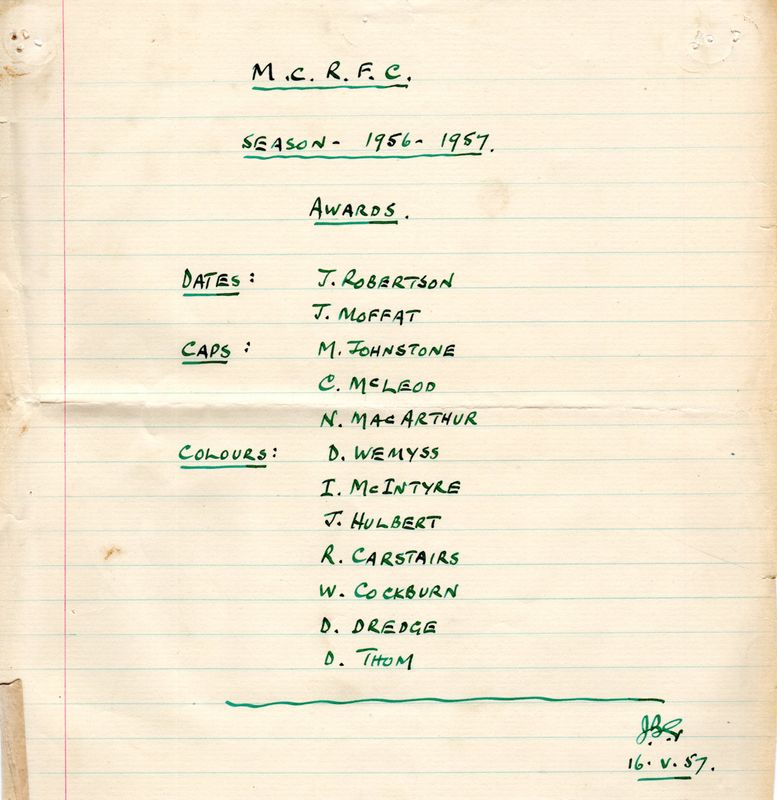 M.C.R.F.C.
SEASON - 1956 - 1957.
AWARDS.
DATES: J. ROBERTSON
J. MOFFAT
CAPS: M. JOHNSTONE
C. McLEOD
N. MacARTHUR
COLOURS: D. WEMYSS
I. McINTYRE
J. HULBERT
R. CARSTAIRS
W. COCKBURN
D. DREDGE
D. THOM
16. V. 57.